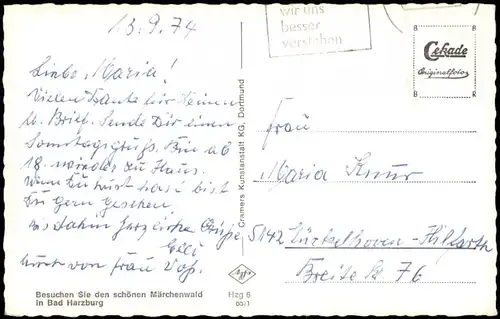 13.9.74
wir uns
besser
verstehen
Cekade
Originalfoto
Liebe Maria!
Vielen Dank für Deinen
lb. Brief. Sende Dir einen
Sonntagsgruß. Bin ab
18. wieder zu Haus.
Wenn Du Lust hast bist
Du gern gesehen.
Bis dahin herzliche Grüße
Elli
Gruß von Frau Voß.
Cramers Kunstanstalt KG, Dortmund
Frau
Maria
5142 Hückelhoven-Hilfarth
Breite Str 76
Besuchen Sie den schönen Märchenwald
in Bad Harzburg
Hzg 6
Agfa